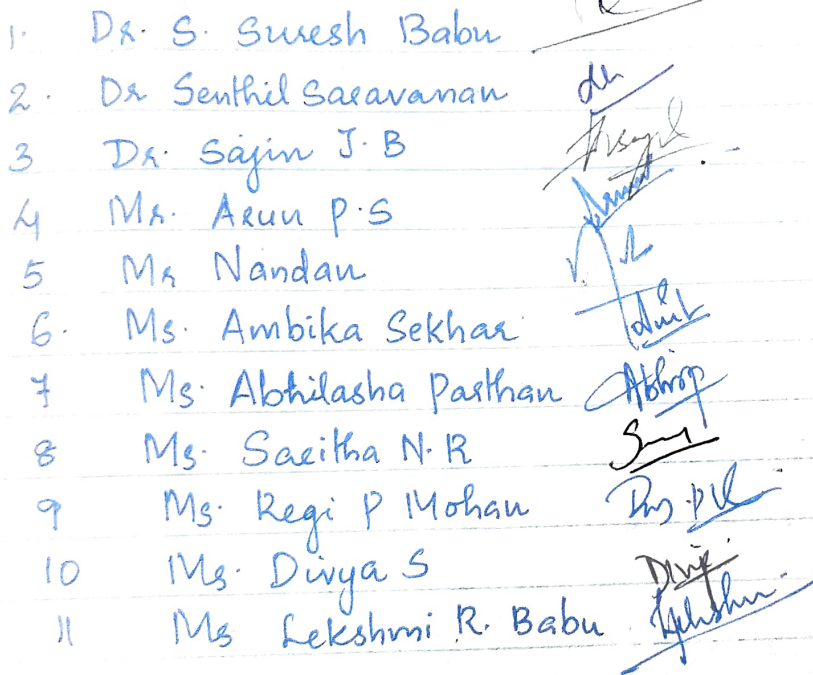 1. Dr. S. Suresh Babu
2. Dr Senthil Saravanan
3 Dr. Sajin J.B
4 Mr. Arun P.S
5 Mr Nandan
6. Ms. Ambika Sekhar
7 Ms. Abhilasha Parthan
8 Ms. Saritha N.R
9 Ms. Regi P Mohan
10 Ms. Divya S
11 Ms Lekshmi R. Babu